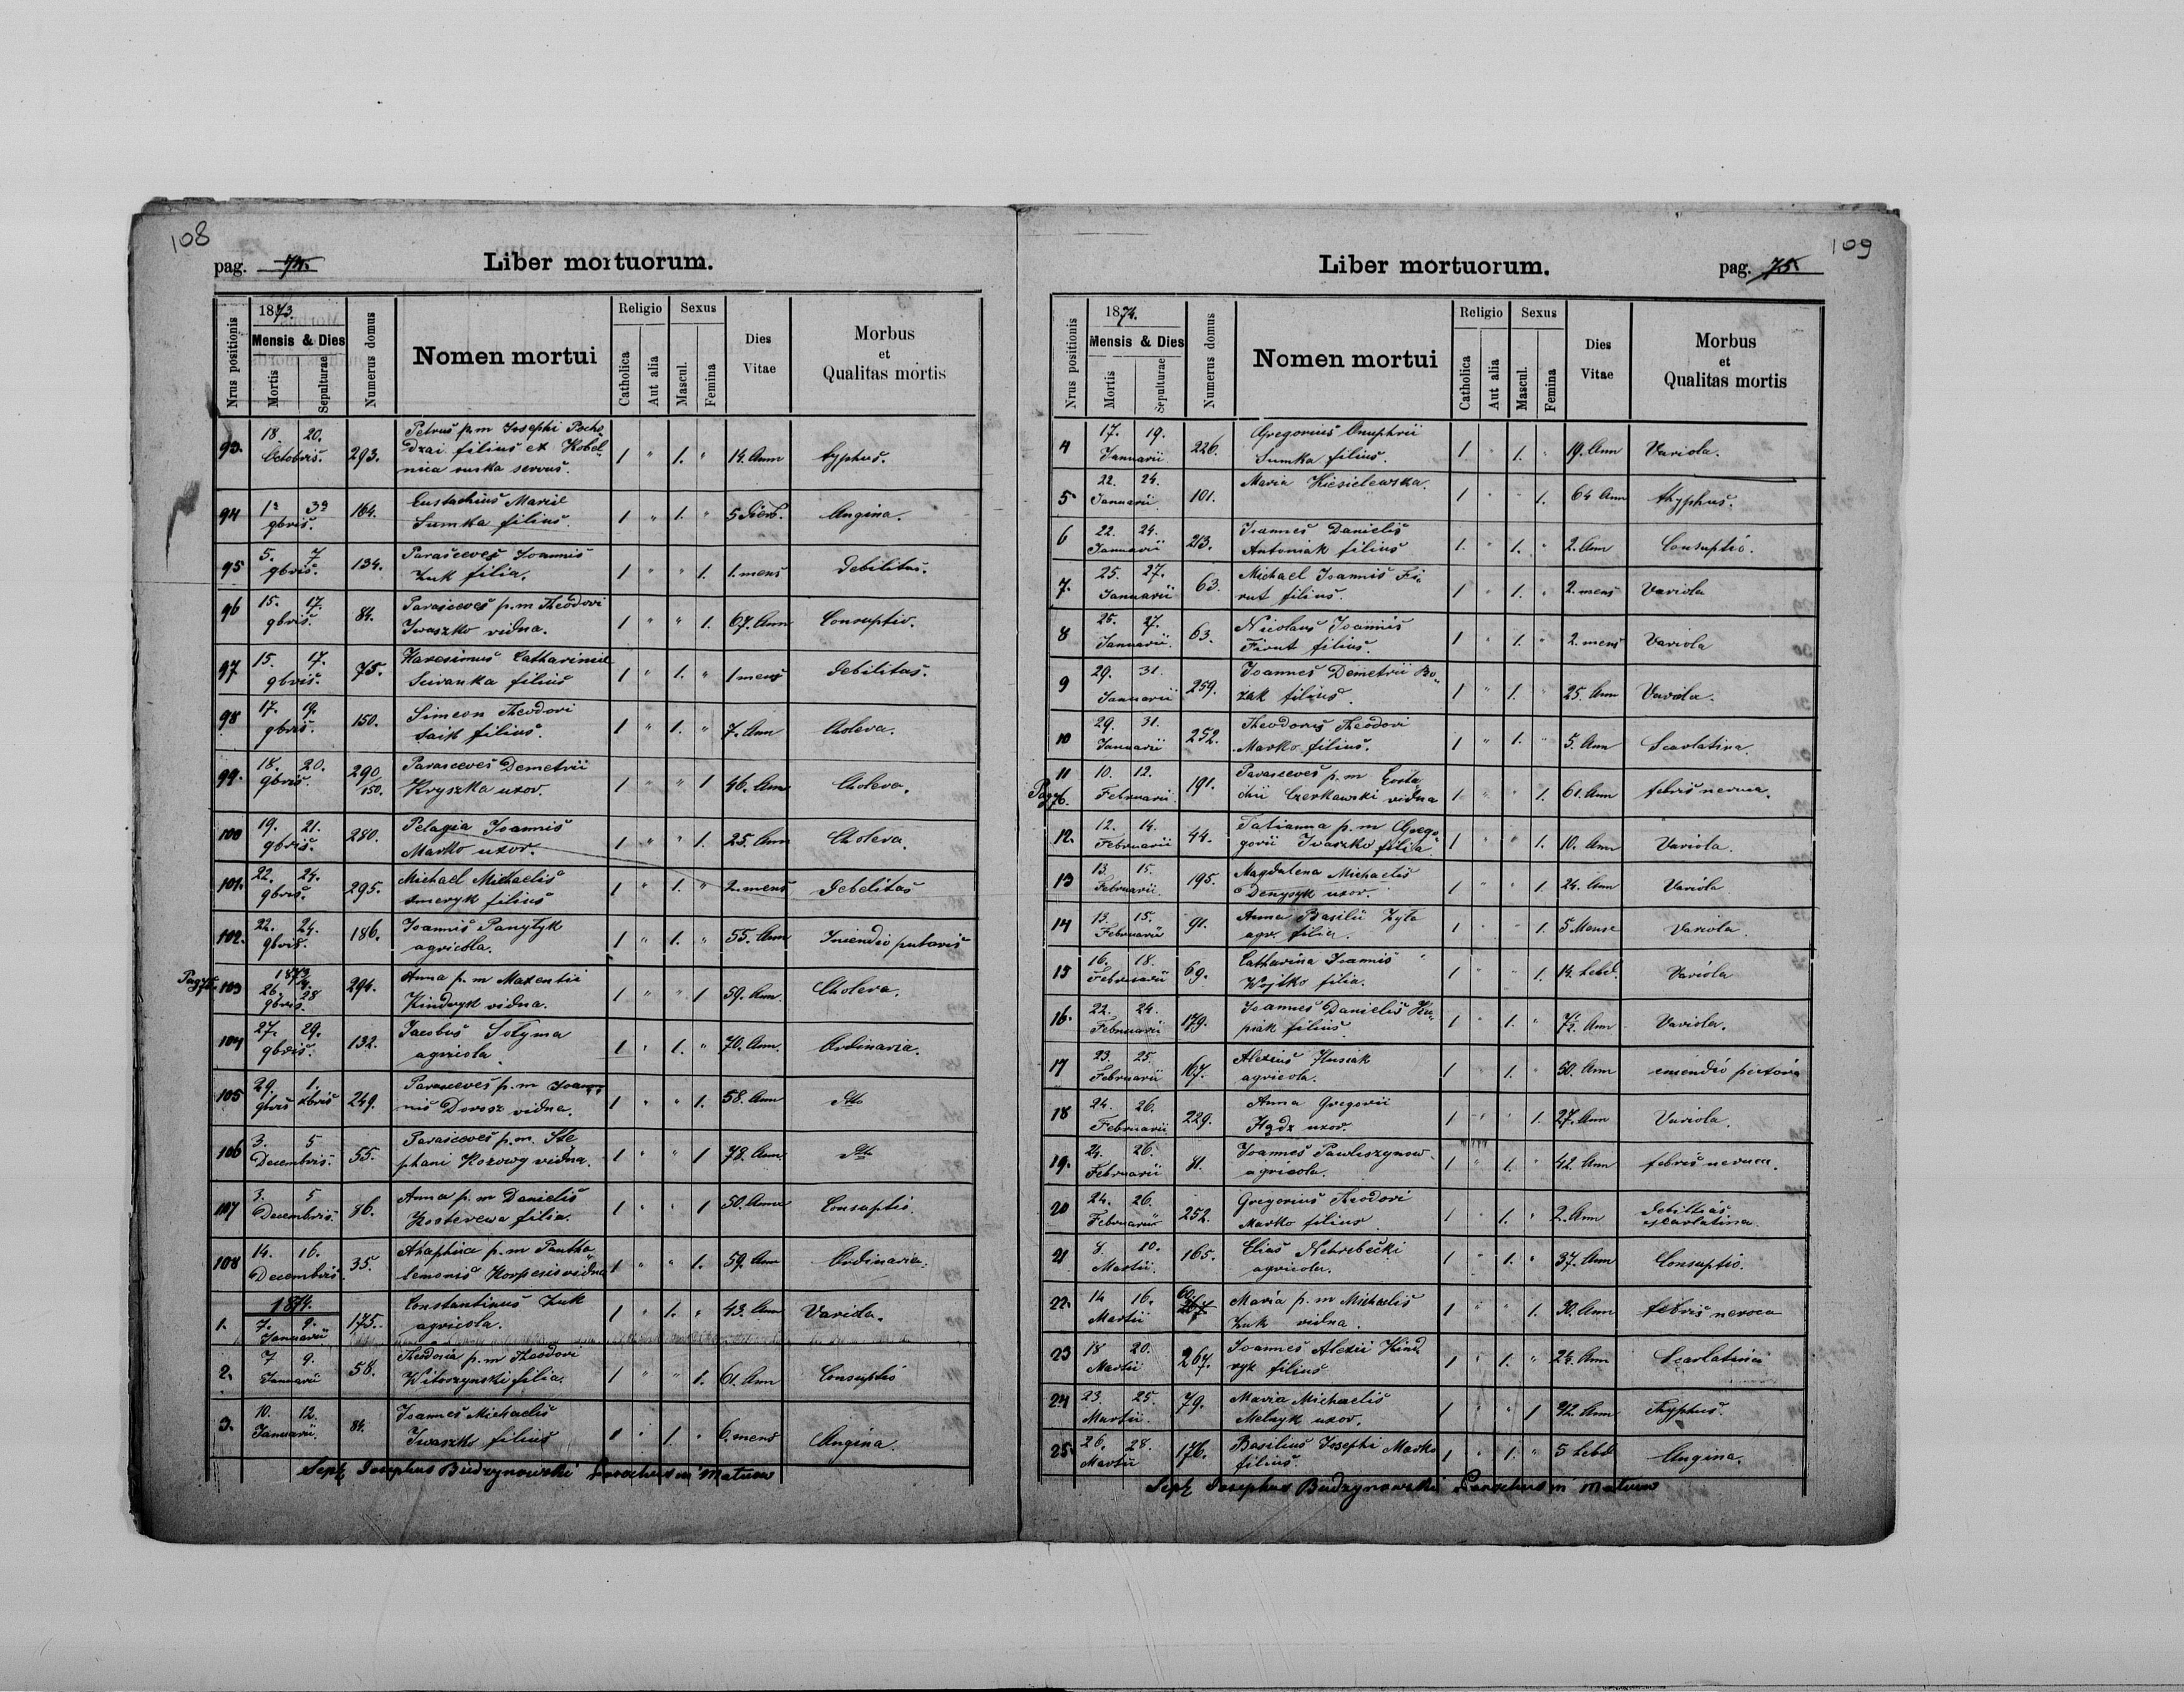 108
pag. 74.
Liber mortuorum.
Nrus positionis
1873.
Mensis & Dies
Mortis
Sepulturae
Numerus domus
Nomen mortui
Religio
Catholica
Aut alia
Sexus
Mascul.
Femina
Dies
Vitae
Morbus
et
Qualitas mortis
93. 18. 20. Octobris. 293. Petrus p.m Josephi
filius ex Kobel„
nica ruska servus. 1 " 1. " 14. Ann typhus.
94 1a 3a 9bris. 164. Eustachius Mariæ
Sumka filius. 1 " 1. " 5 Angina.
95 5. 7 9bris. 134. Parasceves Joannis
Zuk filia. 1 " " 1. 1. mens Debilitas.
96 15. 17. 9bris. 84. Parasceves p.m Theodori
Iwaszko vidua. 1 " " 1. 67. Ann Consuptio.
97 15. 17. 9bris. 75. Catharinæ
filius 1 " 1. " 1 mens Debilitas.
98 17. 19. 9bris. 150. Simeon Theodori
Saik filius. 1 " 1. " 7. Ann Cholera.
99. 18. 20. 9bris. 290/150. Parasceves Demetrii
Kryszka uxor. 1 " " 1 46. Ann Cholera.
100 19. 21. 9bris. 280. Pelagia Joannis
Marko uxor. 1 " " 1. 25. Ann Cholera.
101. 22. 24. 9bris. 295. Michael Michaelis
Smeryk filius 1 " 1. " 2. mens Debelitas
102. 22. 24. 9bris. 186. Joannis Panylyk
agricola. 1 " 1. " 55. Ann
103 1873 26. 28 9bris. 294. Anna p.m Maxentii
Kindryk vidua. 1 " " 1 59. Ann. Cholera.
104 27. 29. 9bris. 132. Jacobus Solyma
agricola. 1 " 1. " 70. Ann. Ordinaria.
105 29. 9bris 1. xbris 249. Parasceves p.m Joan
nis Dorosz vidua. 1 " " 1. 58. Ann dtto
106 3. 5 Decembris. 55. Parasceves p.m. Ste
phani Kozowy vidua. 1 " " 1 78. Ann. dtto
107 3. 5 Decembris. 86. Anna p.m Danielis
Kosterewa filia. 1 " " 1 50. Ann Consuptio.
108 14. 16. Decembris. 35. Ahaphia p.m Pantha„
lemonis Korpesio vidua 1 " " 1. 59. Ann Ordinaria.
1874.
1. 7. 9. Januarii 175. Constantinus Zuk
agricola. 1 " 1. " 43. Ann Variola.
2. 7 9. Januarii 58. Theodosia p.m Theodori
Witoszynski filia. 1 " " 1. 61. Ann Consuptio
3. 10. 12. Januarii. 84. Joannes Michaelis
Iwaszko filius 1 " 1. " 6. mens Angina.
Josephus Budzynowski Parochus in
109
Liber mortuorum.
pag. 75.
Nrus positionis
1874.
Mensis & Dies
Mortis
Sepulturae
Numerus domus
Nomen mortui
Religio
Catholica
Aut alia
Sexus
Mascul.
Femina
Dies
Vitae
Morbus
et
Qualitas mortis
4 17. 19. Januarii 226. Gregorius Onuphrii
Sumka filius. 1. " 1. " 19. Ann Variola.
5 22. 24. Januarii 101. Maria Kiesielewska. 1 " " 1. 64 Ann thyphus.
6 22. 24. Januarii 213. Joannes Danielis
Antoniak filius 1. " 1. " 2. Ann Consuptio.
7. 25. 27. Januarii 63. Michael Joannis Fi„
rut filius. 1 " 1. " 2. mens Variola
8 25. 27. Januarii. 63. Nicolaus Joannis
Firut filius. 1 " 1. " 2. mens Variola
9 29. 31. Januarii 259. Joannes Demetrii Bo„
zak filius. 1 " 1. " 25. Ann Variola.
10 29. 31. Januarii 252. Theodorus Theodori
Marko filius. 1 " 1. " 5. Ann Scarlatina.
Pag 76.
11 10. 12. Februarii 191. Parasceves p.m Eusta„
chii Czerkawski vidua 1 " " 1. 61. Ann febris nervea.
12. 12. 14. Februarii 44. Tatianna p.m Grego„
gorii Iwaszko filia 1 " " 1. 10. Ann Variola.
13 13. 15. Februarii. 195. Magdalena Michaelis
Denysyk uxor. 1 " " 1. 24. Ann Variola
14 13. 15. Februarii 91. Anna Basilii Zyla
agr. filia. 1 " " 1. 5 Mense Variola.
15 16. 18. Februarii 69. Catharina Joannis
Wojtko filia. 1 " " 1. 14. hebd. Variola
16. 22. 24. Februarii 179. Joannes Danielis Ku„
piak filius 1 " 1. " Ann Variola.
17 23. 25. Februarii 167. Alexius Husiak
agricola. 1 " 1. " 50. Ann
18 24. 26. Februarii 229. Anna Gregorii
Hądz uxor. 1 " " 1. 27. Ann Variola.
19. 24. 26. Februarii 81. Joannes Pawliszynow
agricola. 1 " 1. " 42. Ann febris nervea.
20 24. 26. Februarii 252. Gregorius Theodori
Marko filius. 1 " 1. " 2. Ann Debilitas
scarlatina.
21 8. 10. Martii. 165. Elias Nehrebecki
agricola. 1 " 1. " 37. Ann Consuptio.
22. 14 16. Martii 60. 267 Maria p.m Michaelis
Zuk vidua. 1 " " 1. 30. Ann febris nervea
23 18 20. Martii 267. Joannes Alexii Kind
ryk filius 1 " 1. " 24. Ann Scarlatina
24 23. 25. Martii. 79. Maria Michaelis
Melnyk uxor. 1 " " 1 42. Ann Thyphus.
25 26. 28. Martii 176. Basilius Josephi Marko
filius. 1 " 1. " 5 hebd Angina.
Josephus Budzynowski Parochus in